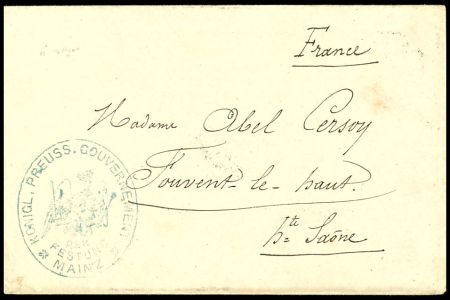 France
Madame Abel Cersoy
Fouvent-le-haut.
hte Saône
KÖNIGL. PREUSS. GOUVERNEMENT
DER
FESTUNG
* MAINZ *